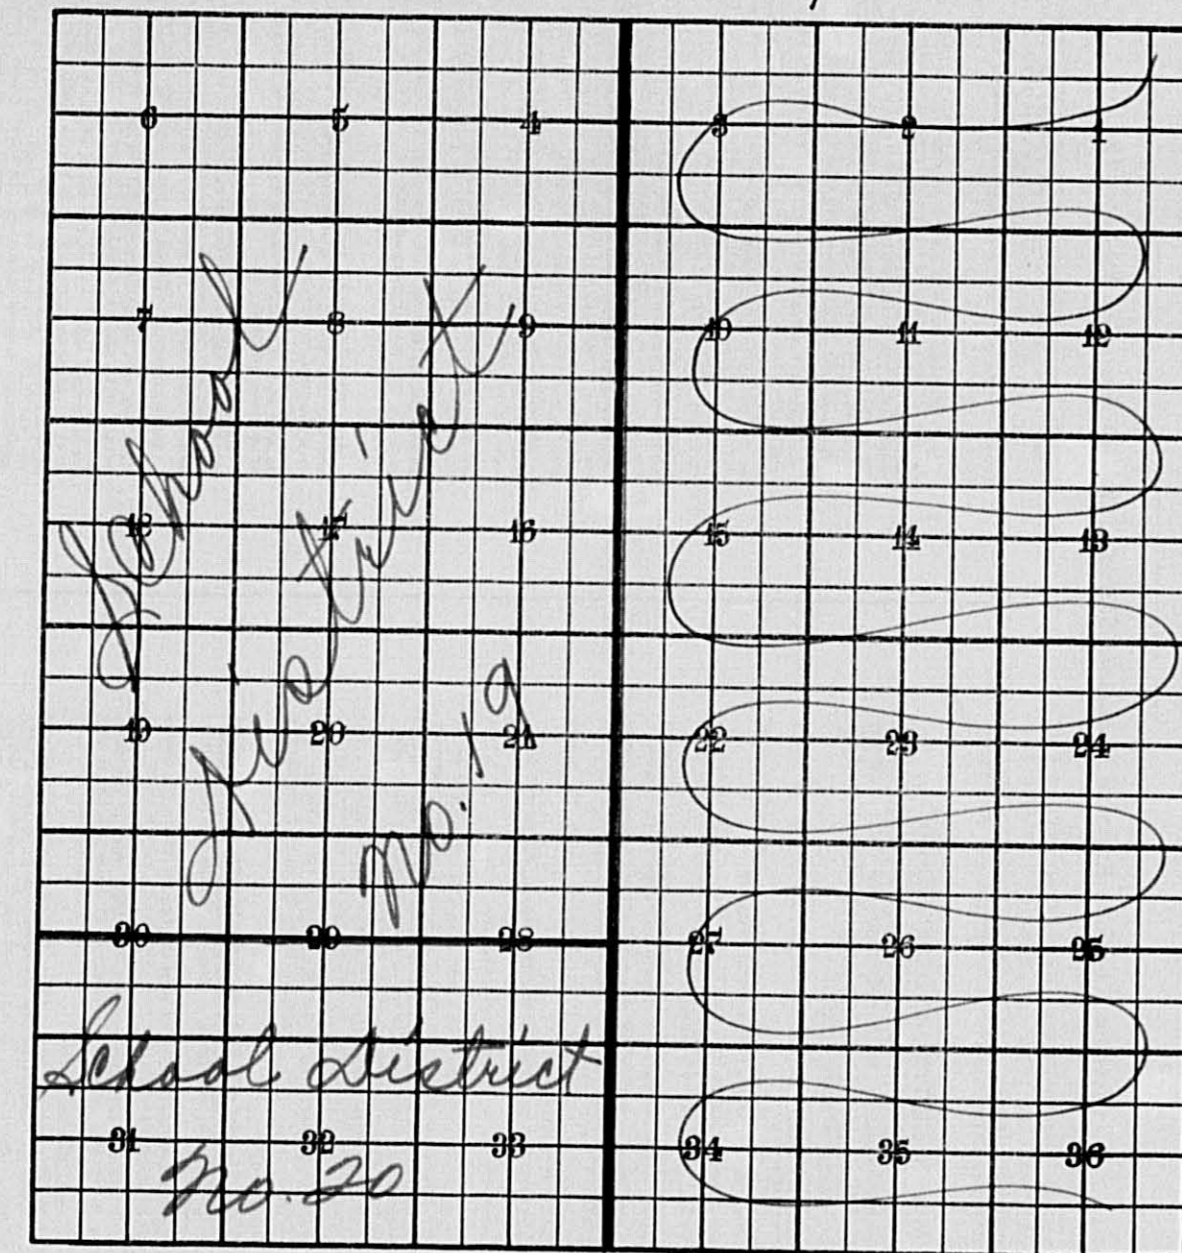 6 5 4 3 2 1
7 8 9 10 11 12
18 17 16 15 14 13
19 20 21 22 23 24
30 29 28 27 26 25
31 32 33 34 35 36
School
District
No. 19
School District
No. 20